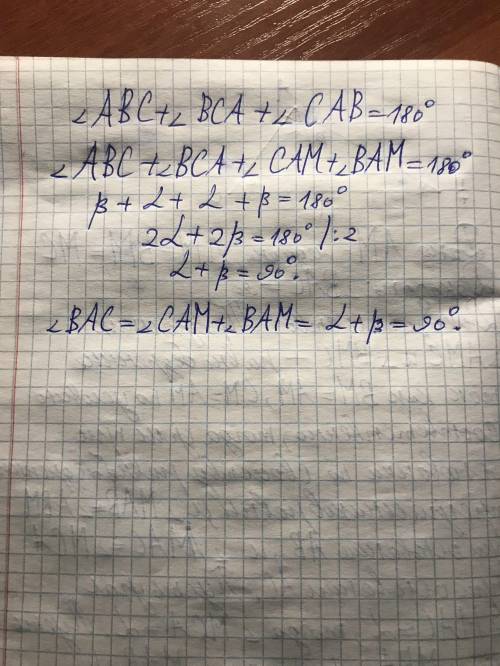 ∠ABC+∠BCA+∠CAB=180°
∠ABC+∠BCA+∠CAM+∠BAM=180°
β+α+α+β=180°
2α+2β=180° /:2
α+β=90°.
∠BAC=∠CAM+∠BAM=α+β=90°.